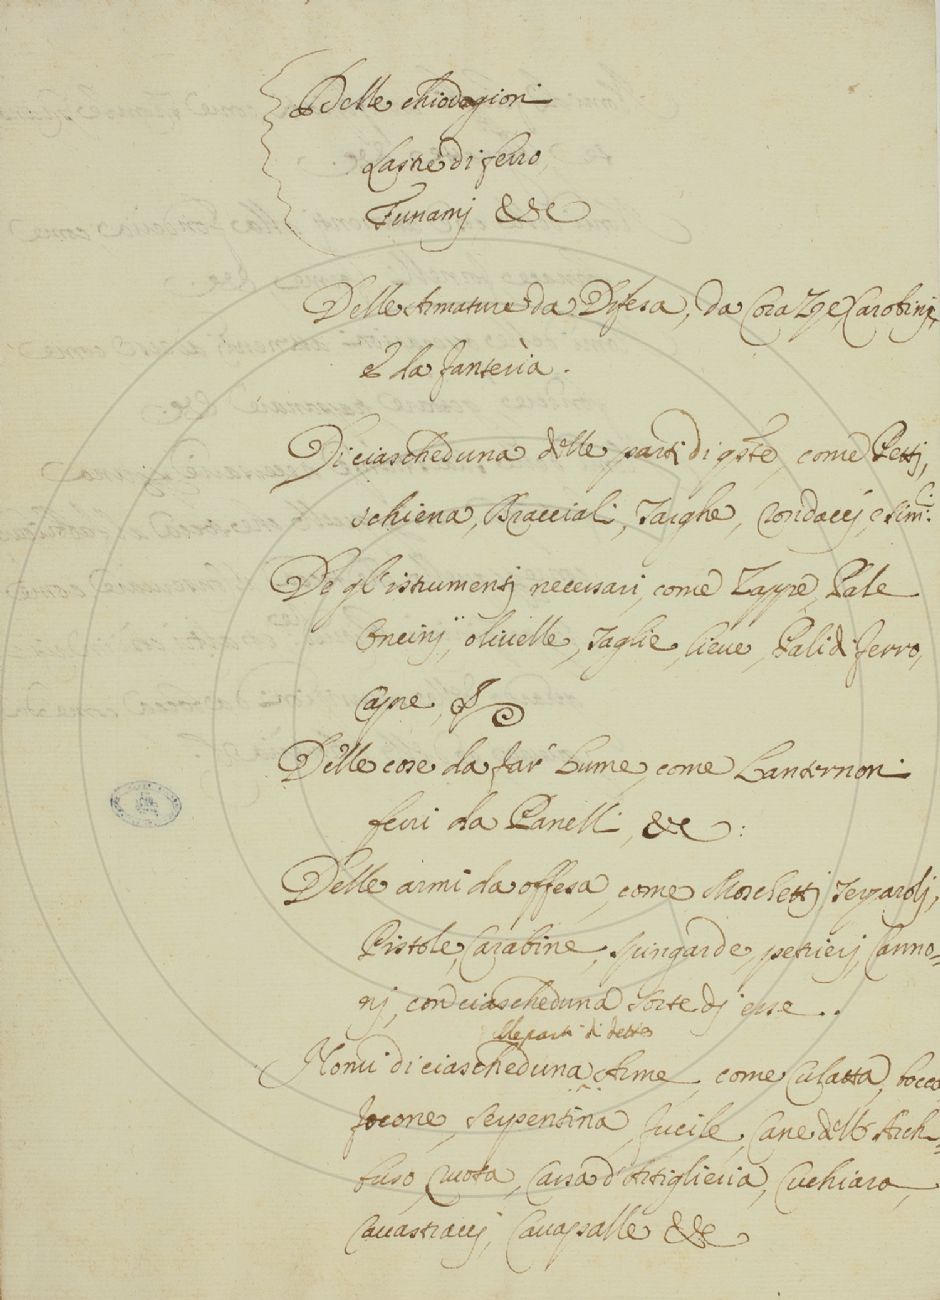 Delle chiodagioni
Lastre di ferro,
Funamj &&c
Delle Armature da Difesa, da Corazze, Carabinj,
e da fanteria.
Di ciascheduna delle parti di q.ste, come Pettj,
schiena, Bracciali, Targhe, e sim.li
De gl'istrumentj necessari, come Zappe, Pale
Oncinij, olivelle, Taglie, lieve, Pali di ferro,
Capre,
Delle cose da far Lume, come Lanternoni
ferri da Panelli, &c:
Delle armi da offesa, come Moschettj Terzarolj,
Pistole, Carabine, spingarde, petrierj, Canno=
nj, con ciascheduna sorte dj esse..
delle parti di dette
Nomi di ciascheduna Arme, come Culatta, bocca
focone, serpentina, fucile, Cane dell'Archi=
buso, Ruota, Cassa d'Artiglieria, Cuchiara,
Cavastraccj, Cavapalle &&c